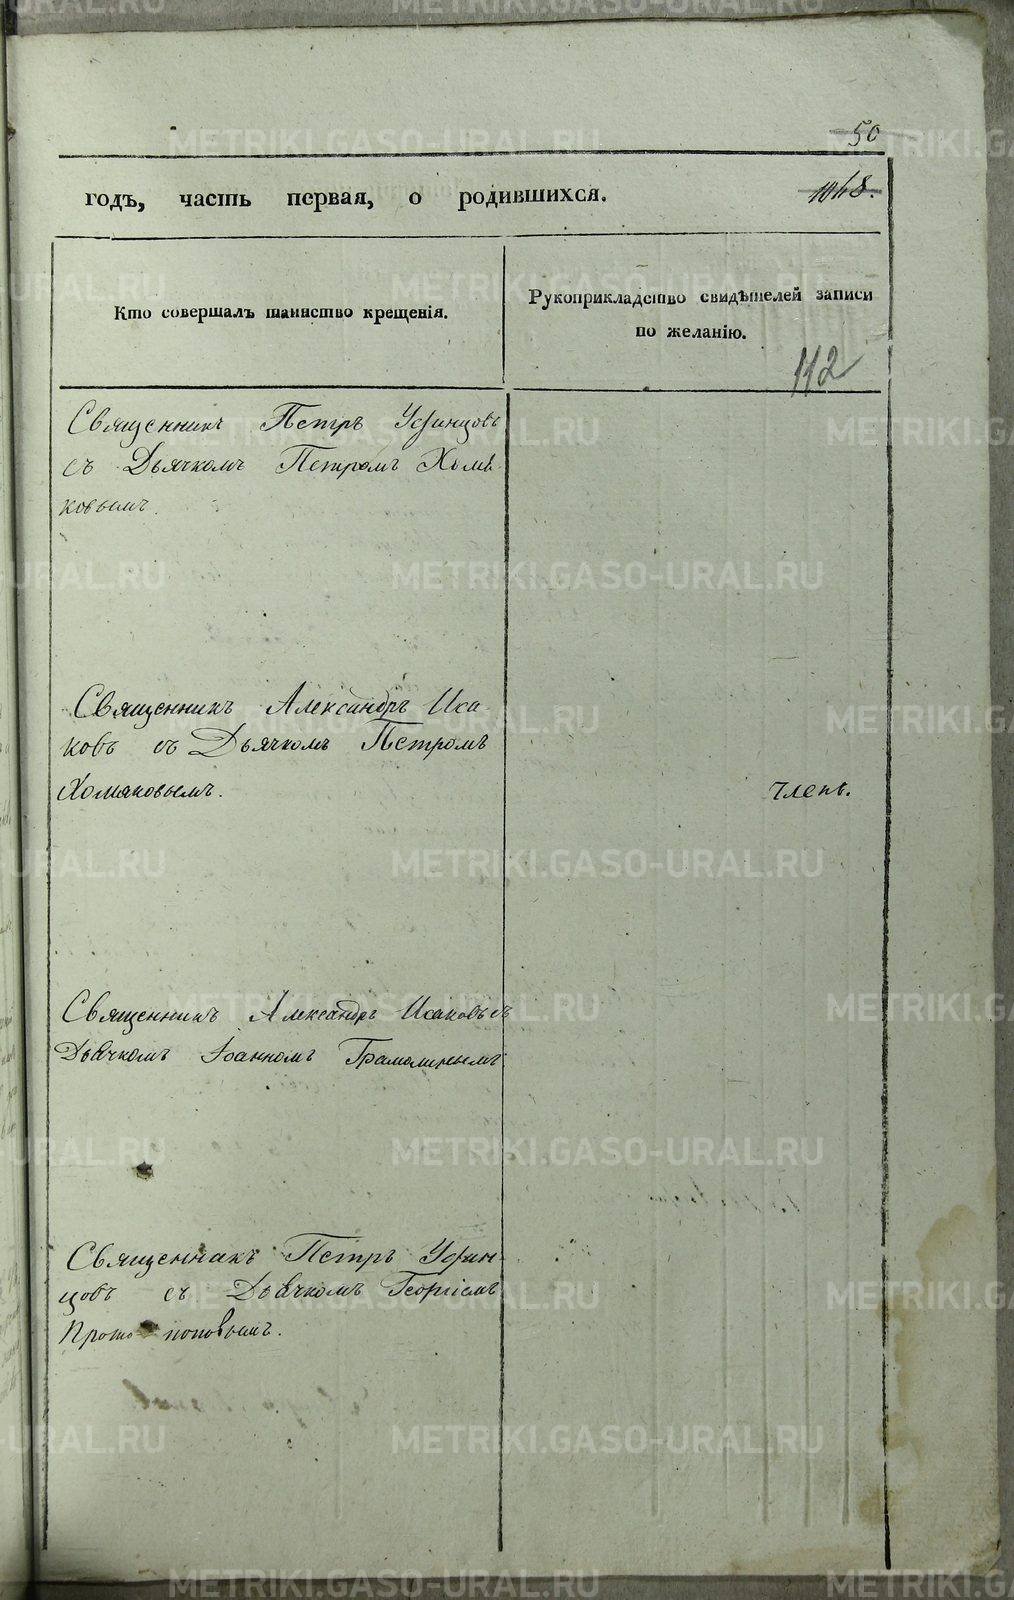 50
годъ, часть первая, о родившихся.
1048.
Кто совершалъ таинство крещенія.
Рукоприкладство свидѣтелей записи
по желанію.
112
Священникъ Петръ Уфинцовъ
съ Дьячкомъ Петромъ Хомя
ковымъ.
Священникъ Александръ Иса-
ковъ съ Дьячкомъ Петромъ
Хомяковымъ.
Членъ.
Священникъ Александръ Исаковъ съ
Дьячкомъ Іоанномъ
Священникъ Петръ Уфин-
цовъ съ Дьячкомъ Георгіемъ
Прото поповымъ.
METRIKI.GASO-URAL.RU